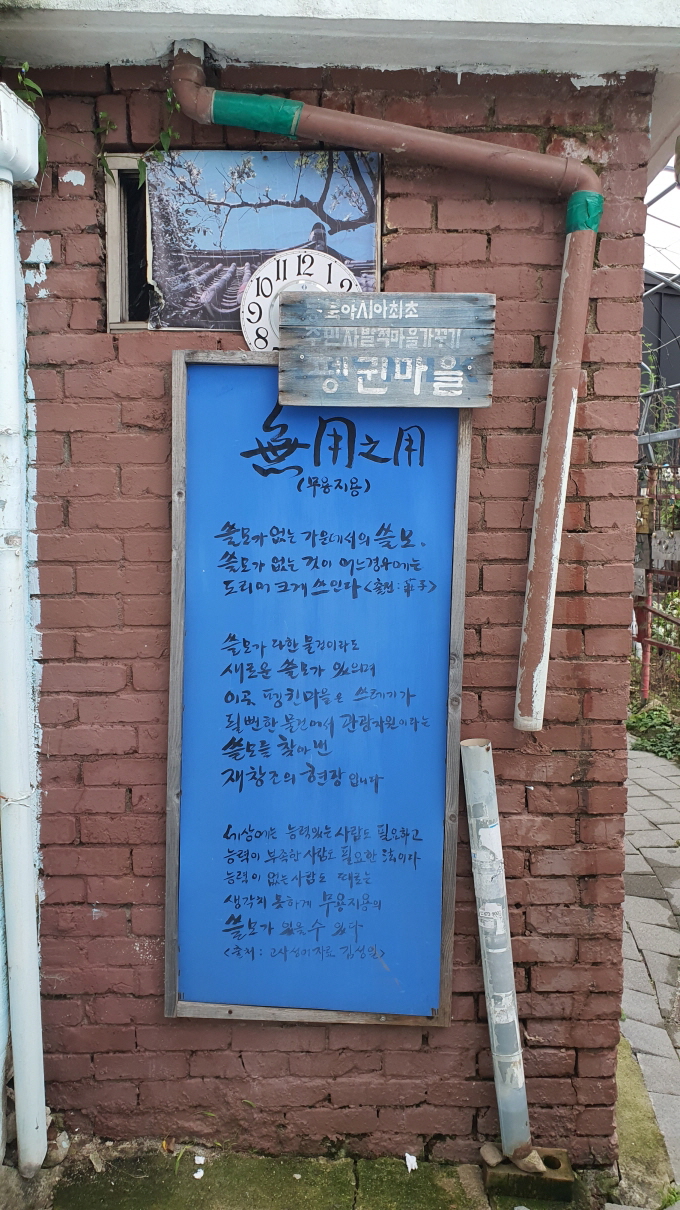 10 11 12 1 2
9
8
아시아최초
주민자발적마을가꾸기
펭귄마을
無用之用
(무용지용)
쓸모가 없는 가운데서의 쓸모.
쓸모가 없는 것이 어느경우에는
도리어 크게 쓰인다 <출전 : 莊子>
쓸모가 다한 물건이라도
새로운 쓸모가 있으며
이곳 펭귄마을은 쓰레기가
될뻔한 물건에서 관광자원이라는
쓸모를 찾아낸
재창조의 현장 입니다
세상에는 능력있는 사람도 필요하고
능력이 부족한 사람도 필요한 法이다
능력이 없는 사람도 때로는
생각지 못하게 무용지용의
쓸모가 있을 수 있다
<출처 : 고사성어 김성일>